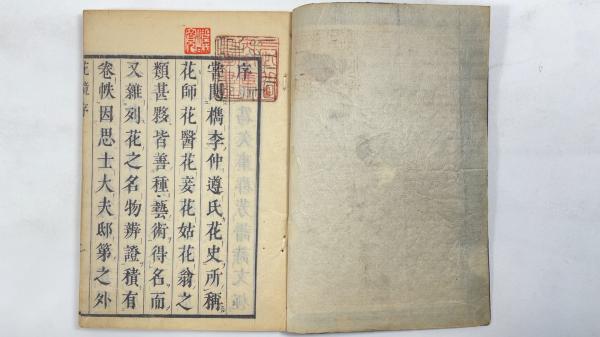 序
嘗聞檇李仲遵氏花史所稱
花師花醫花妾花姑花翁之
類甚夥皆善種藝術得名而
又雜列花之名物辨證積有
卷帙因思士大夫邸第之外
花鏡序